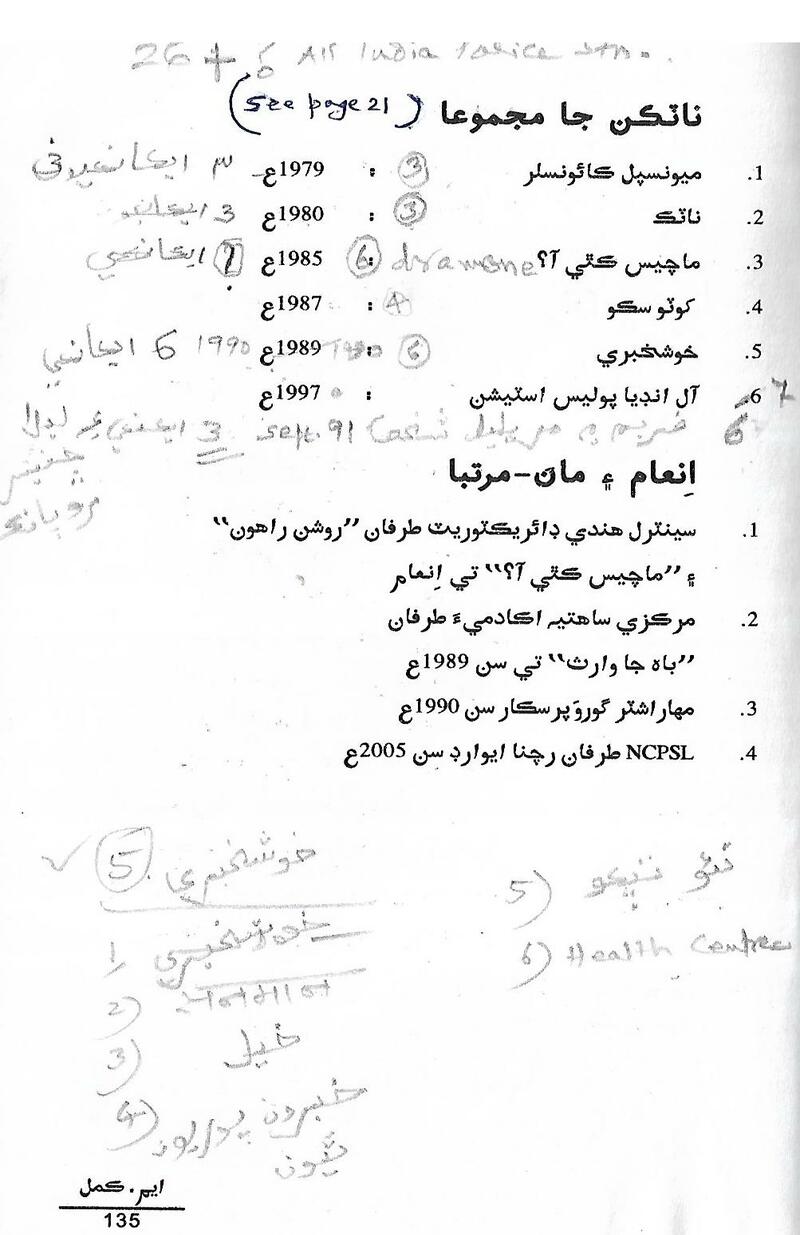 26 + 6 All India Police Stn.
(see page 21)
ناٽڪن جا مجموعا
1. ميونسپل ڪائونسلر : 1979ع (3) ٣ ايڪانڪي
2. ناٽڪ : 1980ع (3) 3
3. ماچيس ڪٿي آ؟ : 1985ع (6) 7 ايڪانڪي
4. کوٽو سڪو : 1987ع (4)
5. خوشخبري : 1989ع 1990 (6) 1990 6 ايڪانڪي
6. آل انڊيا پوليس اسٽيشن : 1997ع 7
6 فريم ۾ مڙهيل شخص sept. 91 3
اِنعام ۽ مان-مرتبا
1. سينٽرل هندي ڊائريڪٽوريٽ طرفان ”روشن راهون“
۽ ”ماچيس ڪٿي آ؟“ تي اِنعام
2. مرڪزي ساهتيه اڪادميءَ طرفان
”باه جا وارث“ تي سن 1989ع
3. مهاراشٽر گورَو پرسڪار سن 1990ع
4. NCPSL طرفان رچنا ايوارڊ سن 2005ع
5. خوشخبري
1) خوشخبري
2) सनमान
3)
4) خبرون پوريون
ٿيون
5) نئو
6) Health Centre
ايم. ڪمل
135